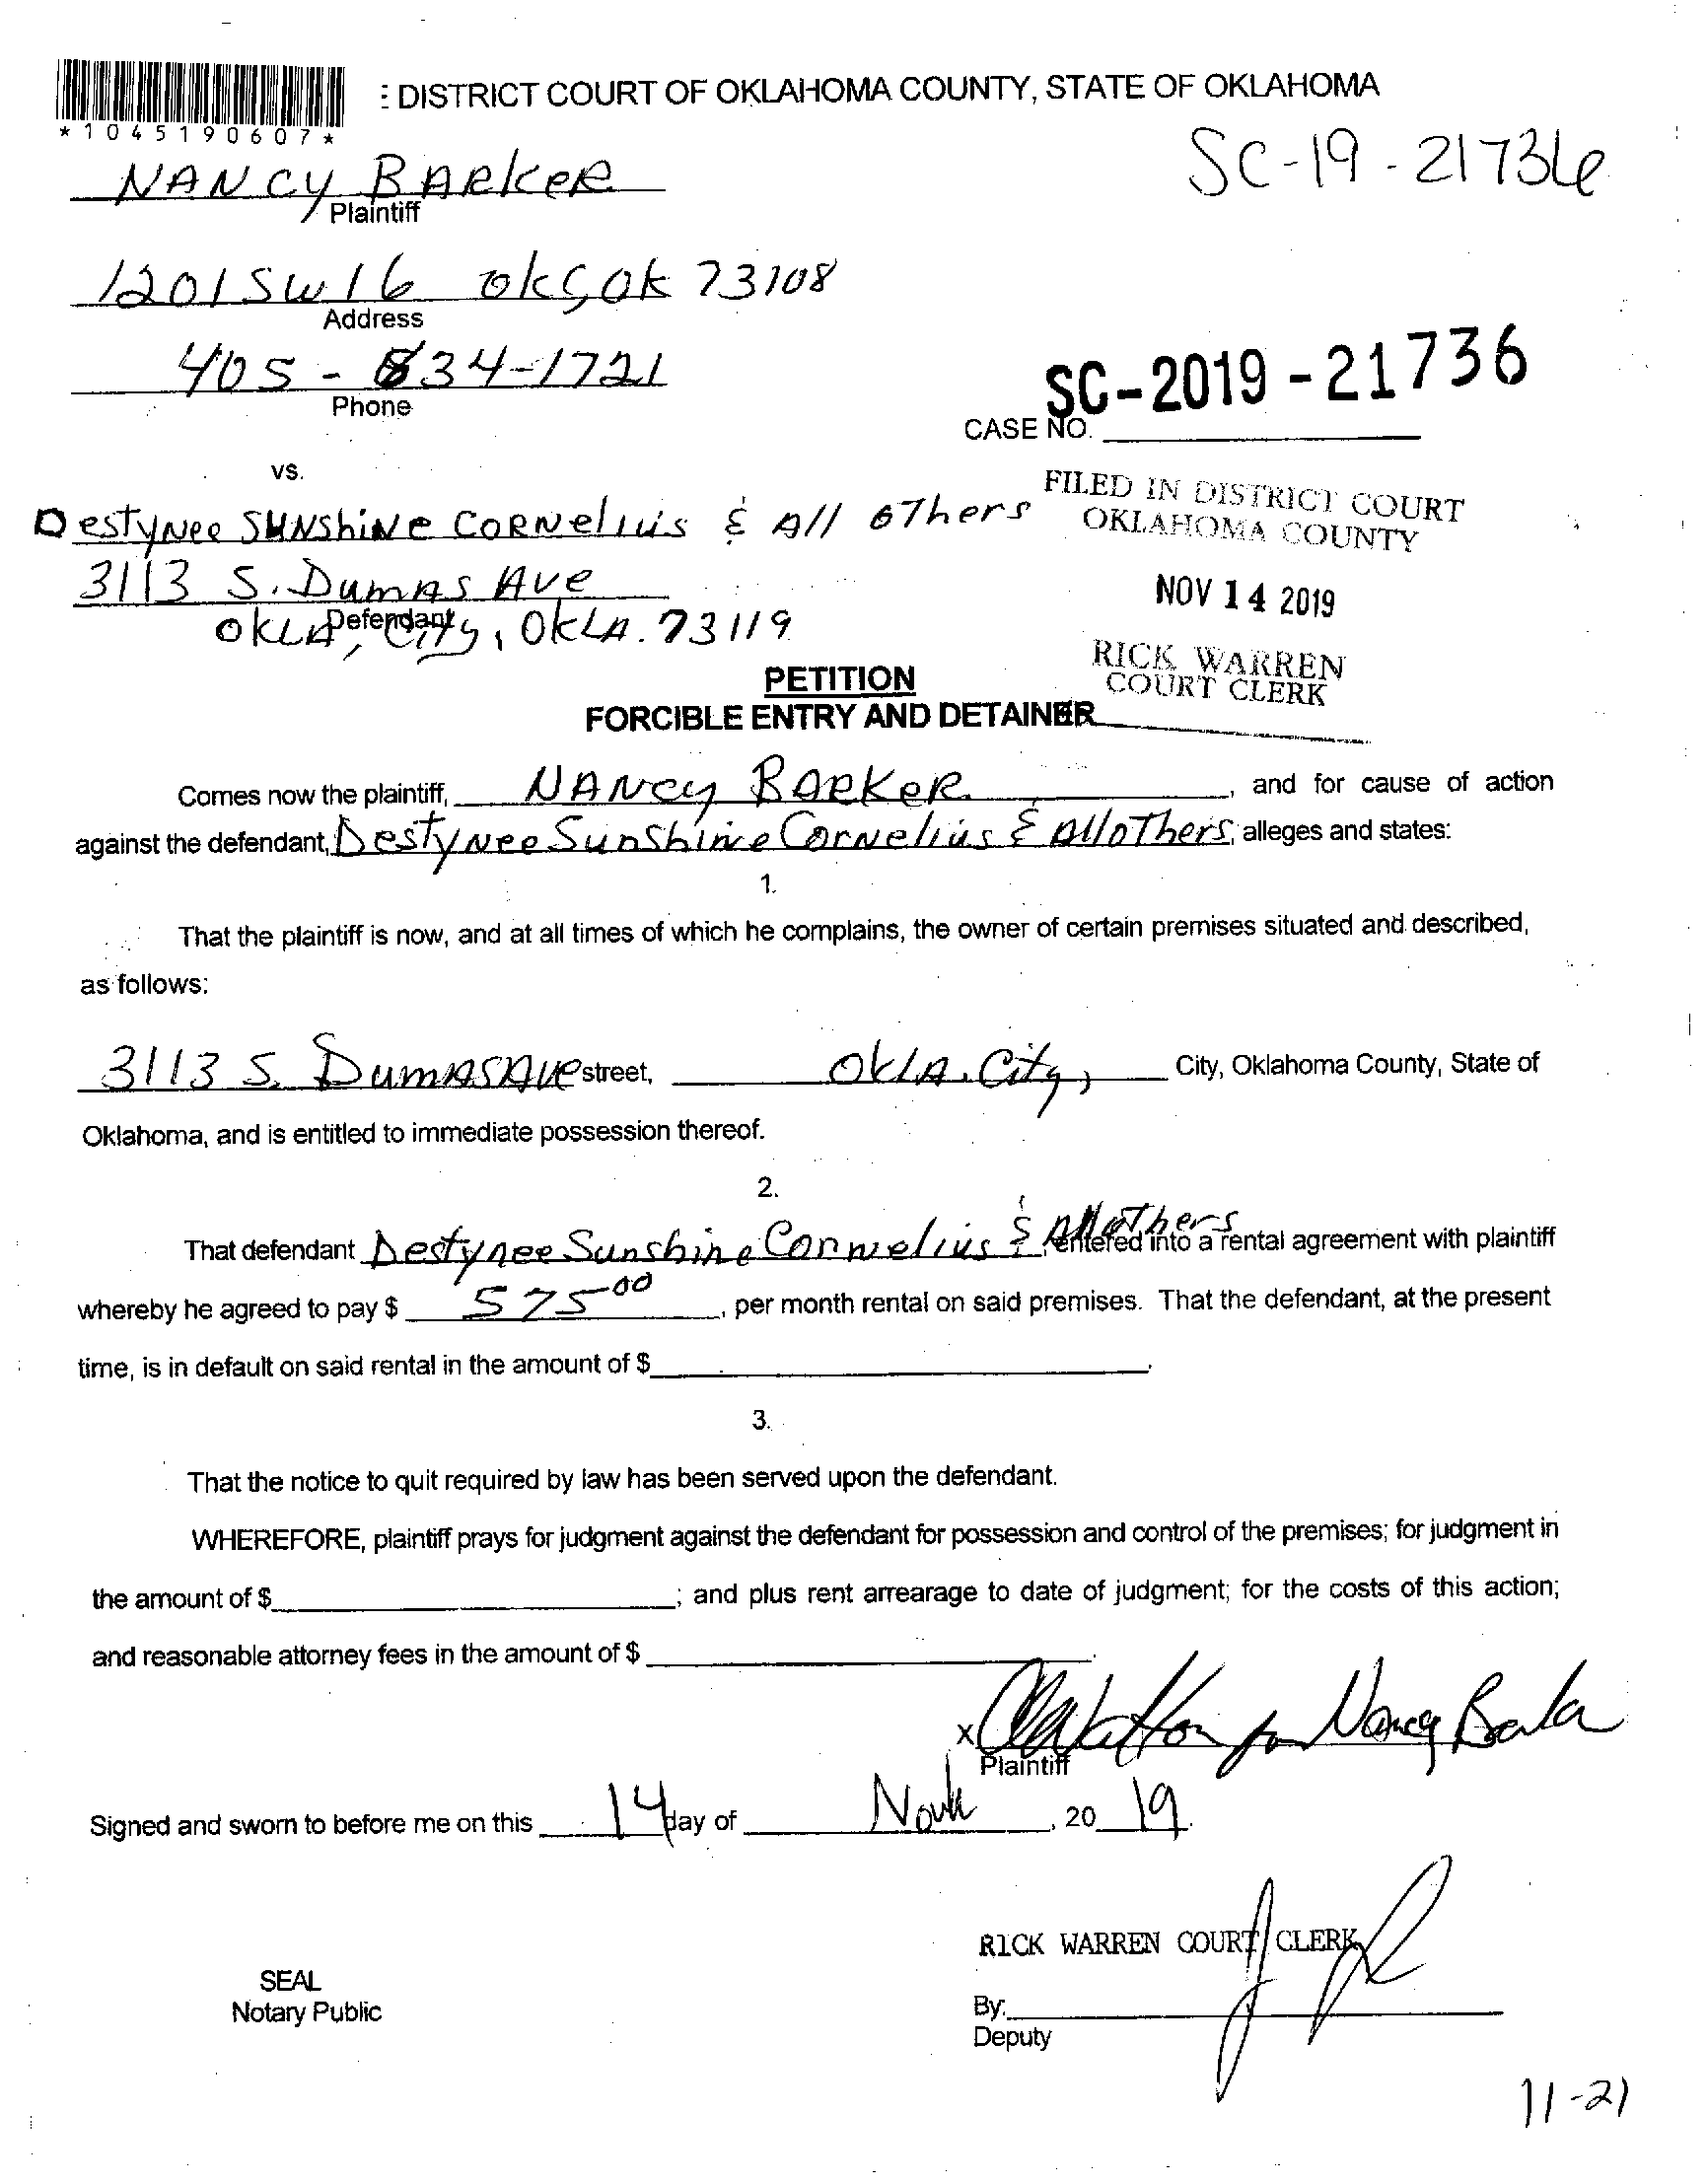 : DISTRICT COURT OF OKLAHOMA COUNTY, STATE OF OKLAHOMA
*1045190607*
SC-19-21736
NANCY BARKER
Plaintiff
1201 SW 16 okc, ok 73108
Address
405-834-1721
Phone
SC-2019-21736
CASE NO.
vs.
Destynee SUNShiNe CORNelius & All others
3113 S. Dumas Ave
Defendant
OKLA, City, OKLA. 73119
FILED IN DISTRICT COURT
OKLAHOMA COUNTY
NOV 14 2019
RICK WARREN
COURT CLERK
PETITION
FORCIBLE ENTRY AND DETAINER
Comes now the plaintiff, NANCY BARKER, and for cause of action
against the defendant, Destynee Sunshine Cornelius & All others, alleges and states:
1.
That the plaintiff is now, and at all times of which he complains, the owner of certain premises situated and described,
as follows:
3113 S. Dumas Ave street, Okla. City, City, Oklahoma County, State of
Oklahoma, and is entitled to immediate possession thereof.
2.
That defendant Destynee Sunshine Cornnelius & All others, entered into a rental agreement with plaintiff
whereby he agreed to pay $ 575 00, per month rental on said premises. That the defendant, at the present
time, is in default on said rental in the amount of $ .
3.
That the notice to quit required by law has been served upon the defendant.
WHEREFORE, plaintiff prays for judgment against the defendant for possession and control of the premises; for judgment in
the amount of $ ; and plus rent arrearage to date of judgment; for the costs of this action;
and reasonable attorney fees in the amount of $ .
x for Nancy Barker
Plaintiff
Signed and sworn to before me on this 14 day of , 20 19.
RICK WARREN COURT CLERK
SEAL
Notary Public
By:
Deputy
11-21